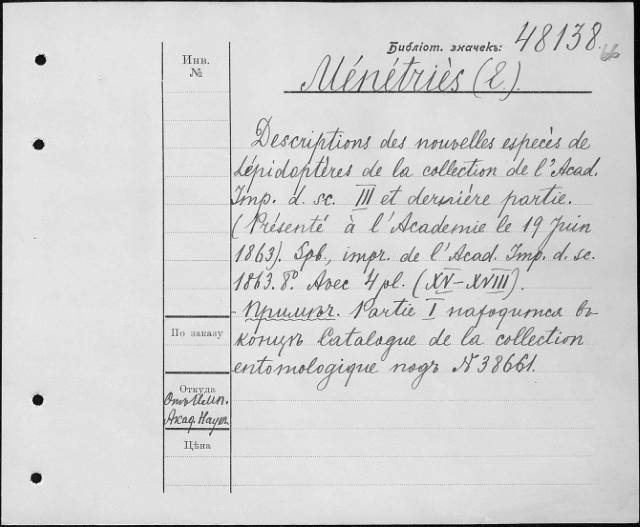 Библіот. значекъ: 48138.
Инв.
№
Ménétriès (E.).
Descriptions des nouvelles espècès de
Lépidoptères de la collection de l'Acad.
Imp. d. sc. III et dernière partie.
(Présenté à l'Academie le 19 Juin
1863). Spb., impr. de l'Acad. Imp. d. sc.
1863. 8º Avec 4 pl. (XV–XVIII).
- Примѣч. Partie I находится въ
концѣ Catalogue de la collection
entomologique подъ № 38661.
По заказу
Откуда
Отъ Имп.
Акад. Наукъ
Цѣна